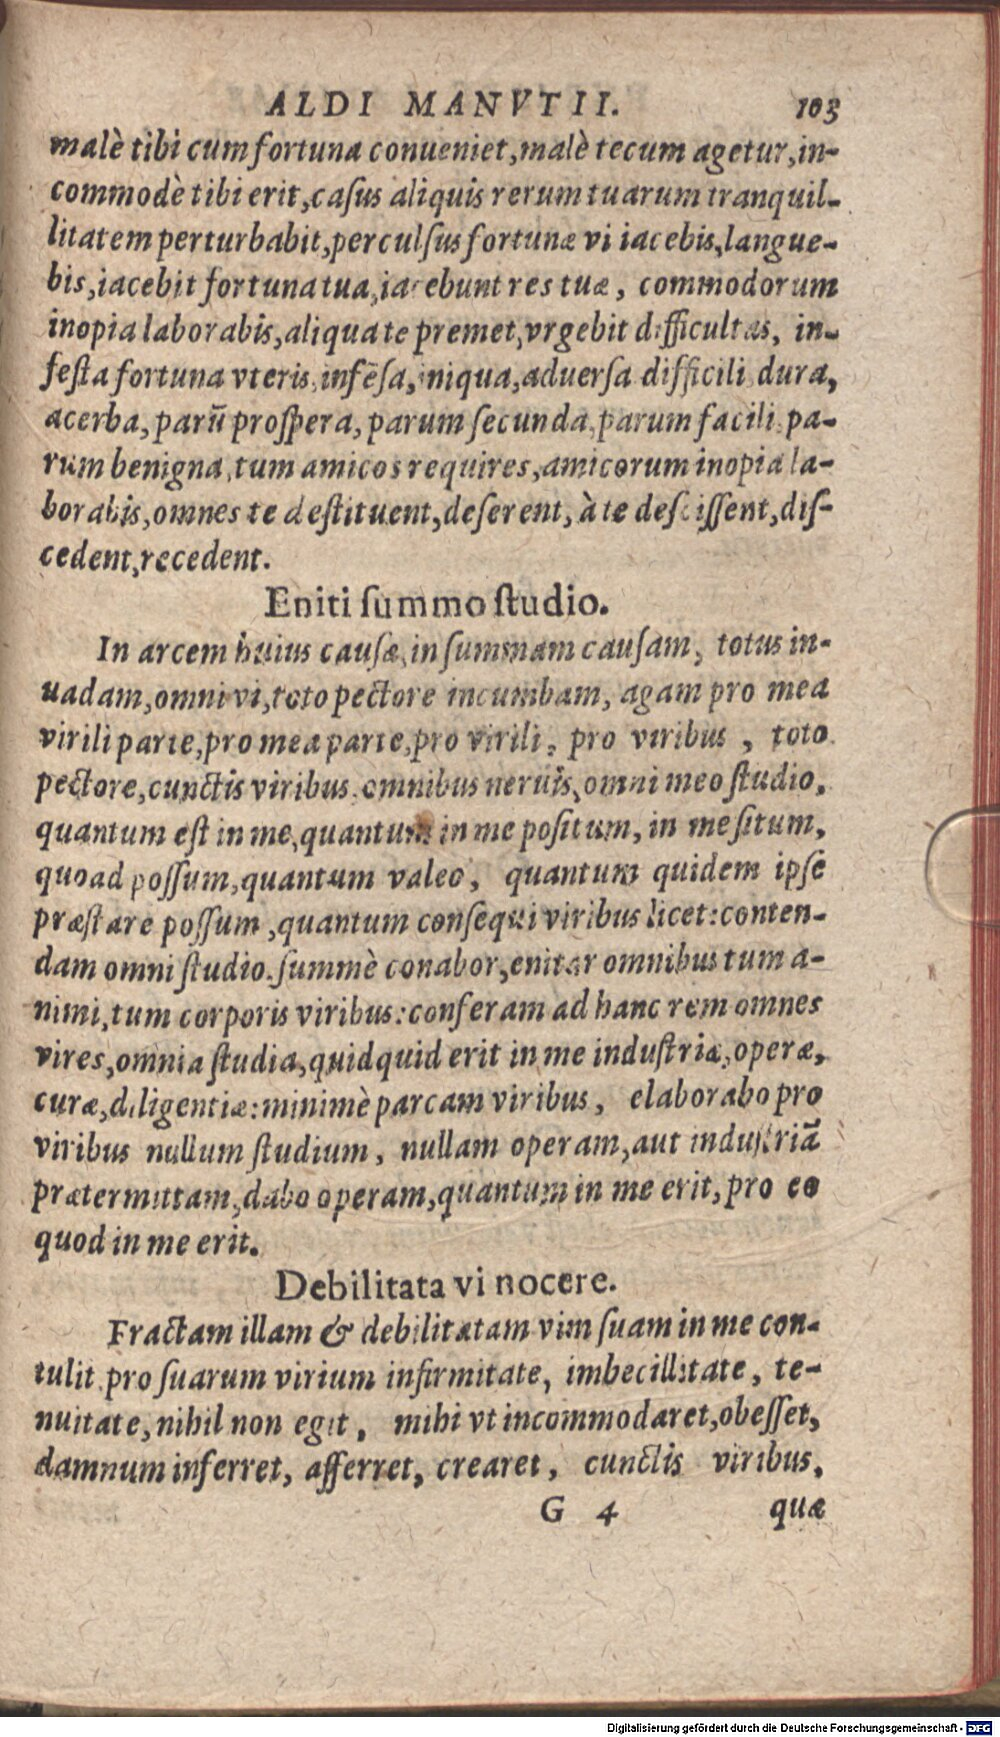 ALDI MANVTII. 103
malè tibi cum fortuna conueniet, malè tecum agetur, in-
commodè tibi erit, casus aliquis rerum tuarum tranquil-
litatem perturbabit, perculsus fortunæ vi iacebis, langue-
bis, iacebit fortuna tua, iacebunt res tuæ, commodorum
inopia laborabis, aliqua te premet, vrgebit difficultas, in-
festa fortuna vteris, infēsa, iniqua, aduersa difficili, dura,
acerba, parū prospera, parum secunda, parum facili, pa-
rum benigna, tum amicos requires, amicorum inopia la-
borabis, omnes te destituent, deserent, à te desciſſent, dis-
cedent, recedent.
Eniti summo studio.
In arcem huius causæ, in summam causam, totus in-
uadam, omni vi, toto pectore incumbam, agam pro mea
virili parte, pro mea parte, pro virili, pro viribus, toto
pectore, cunctis viribus, omnibus neruis, omni meo studio,
quantum est in me, quantum in me positum, in me situm,
quoad possum, quantum valeo, quantum quidem ipse
præstare possum, quantum consequi viribus licet: conten-
dam omni studio, summè conabor, enitar omnibus tum a-
nimi, tum corporis viribus: conferam ad hanc rem omnes
vires, omnia studia, quidquid erit in me industriæ, operæ,
curæ, diligentiæ: minimè parcam viribus, elaborabo pro
viribus nullum studium, nullam operam, aut industriā
prætermittam, dabo operam, quantum in me erit, pro eo
quod in me erit.
Debilitata vi nocere.
Fractam illam & debilitatam vim suam in me con-
tulit pro suarum virium infirmitate, imbecillitate, te-
nuitate, nihil non egit, mihi vt incommodaret, obesset,
damnum inferret, afferret, crearet, cunctis viribus,
G 4 quæ
Digitalisierung gefördert durch die Deutsche Forschungsgemeinschaft - DFG